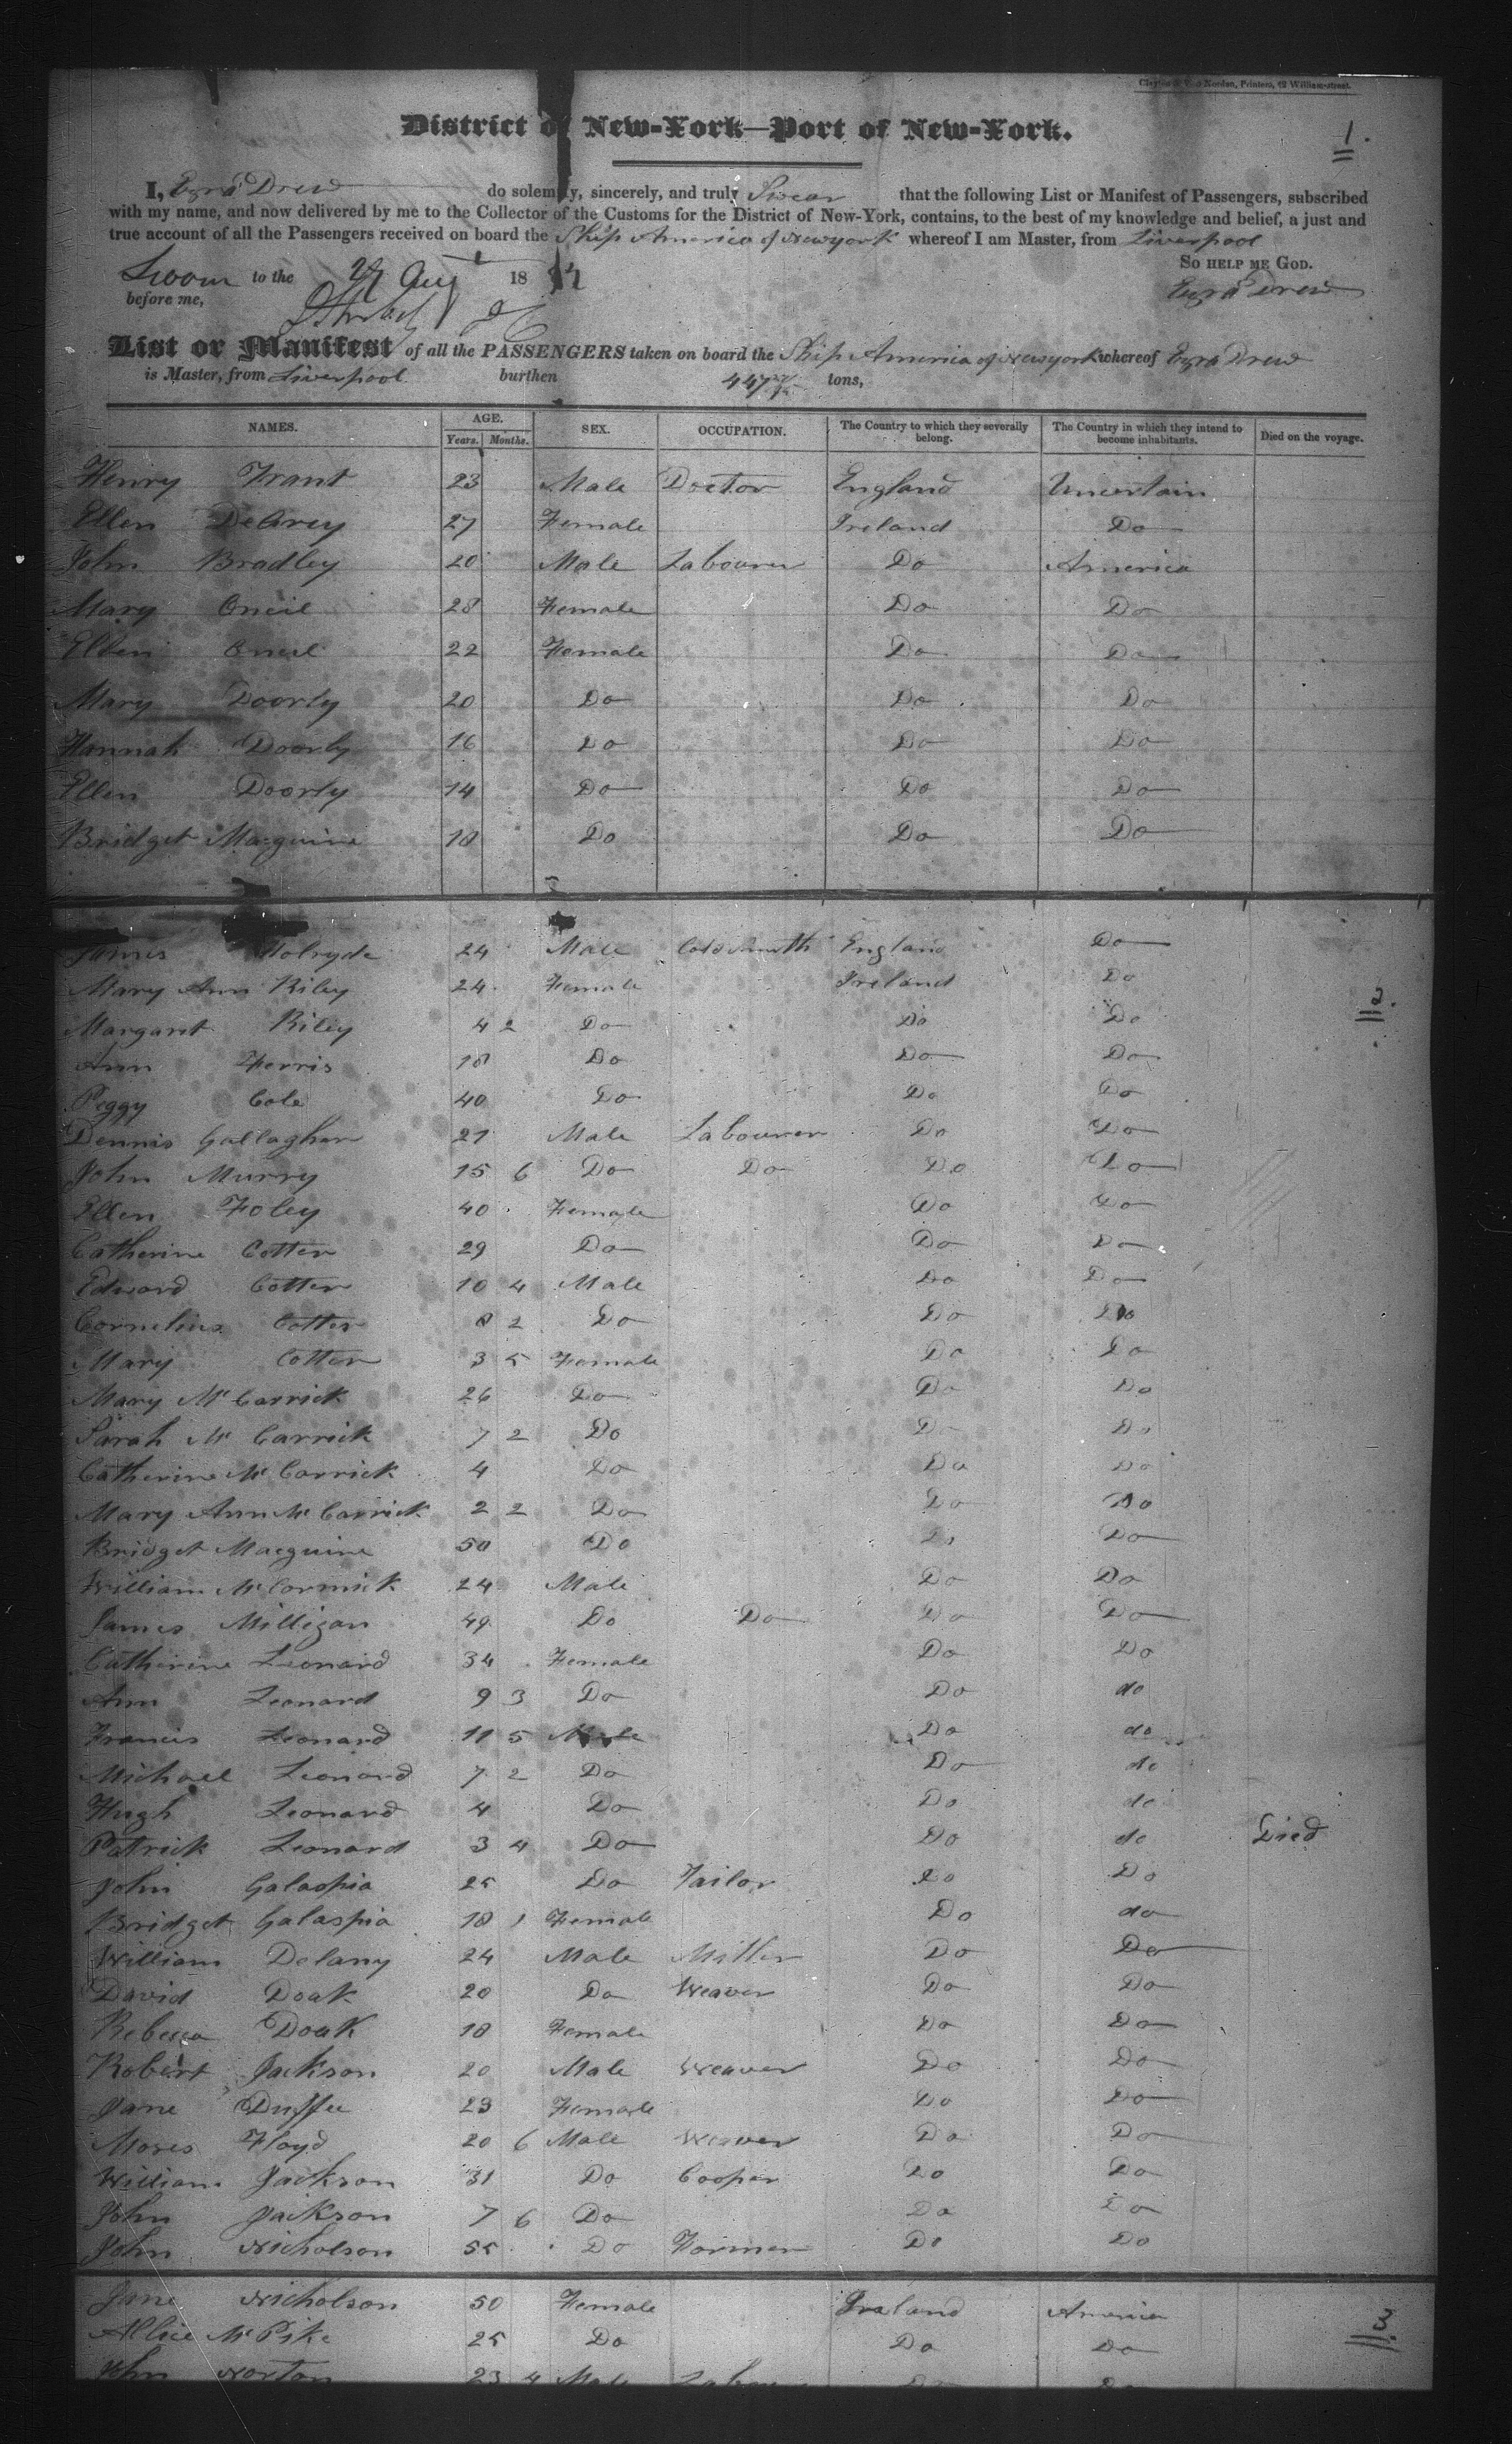 Clayton & Van Norden, Printers, 42 William-street.
District of New-York—Port of New-York.
1.
I, Ezra Drew do solemnly, sincerely, and truly Swear that the following List or Manifest of Passengers, subscribed
with my name, and now delivered by me to the Collector of the Customs for the District of New-York, contains, to the best of my knowledge and belief, a just and
true account of all the Passengers received on board the Ship America of Newyork whereof I am Master, from Liverpool
So help me God.
Sworn to the 27 Aug 18
before me,
Ezra Drew
List or Manifest of all the PASSENGERS taken on board the Ship America of Newyork whereof Ezra Drew
is Master, from Liverpool burthen 447 tons,
NAMES. AGE. SEX. OCCUPATION. The Country to which they severally belong. The Country in which they intend to become inhabitants. Died on the voyage.
Years. Months.
Henry Trant 23 Male Doctor England Uncertain
Ellen 27 Female Ireland Do
John Bradley 20 Male Labourer Do America
Mary Oneil 28 Female Do Do
Ellen Oneil 22 Female Do Do
Mary Doorly 20 Do Do Do
Hannah Doorly 16 Do Do Do
Ellen Doorly 14 Do Do Do
Bridget Macguire 18 Do Do Do
James Holryde 24 Male England Do
2.
Mary Ann Riley 24 Female Ireland Do
Margaret Riley 4 2 Do Do Do
Ann Ferris 18 Do Do Do
Peggy Cole 40 Do Do Do
Dennis Gallagher 21 Male Labourer Do Do
John Murry 15 6 Do Do Do Do
Ellen Foley 40 Female Do Do
Catherine Cotter 29 Do Do Do
Edward Cotter 10 4 Male Do Do
Cornelius Cotter 8 2 Do Do Do
Mary Cotter 3 5 Female Do Do
Mary McCarrick 26 Do Do Do
Sarah McCarrick 7 2 Do Do Do
Catherine McCarrick 4 Do Do Do
Mary Ann McCarrick 2 2 Do Do Do
Bridget Macguire 50 Do Do Do
William McCormick 24 Male Do Do
James Milligan 49 Do Do Do Do
Catherine Leonard 34 Female Do Do
Ann Leonard 9 3 Do Do do
Francis Leonard 11 5 Male Do do
Michael Leonard 7 2 Do Do do
Hugh Leonard 4 Do Do do
Patrick Leonard 3 4 Do Do do Died
John Galaspia 25 Do Tailor Do Do
Bridget Galaspia 18 1 Female Do do
William Delany 24 Male Miller Do Do
David Doak 20 Do Weaver Do Do
Rebecca Doak 18 Female Do Do
Robert Jackson 20 Male Weaver Do Do
Jane Duffee 23 Female Do Do
Moses Floyd 20 6 Male Weaver Do Do
William Jackson 31 Do Cooper Do Do
John Jackson 7 6 Do Do Do
John Nicholson 55 Do Farmer Do Do
Jane Nicholson 50 Female Ireland America
3.
Allice McPike 25 Do Do Do
John Norton 23 4 Male